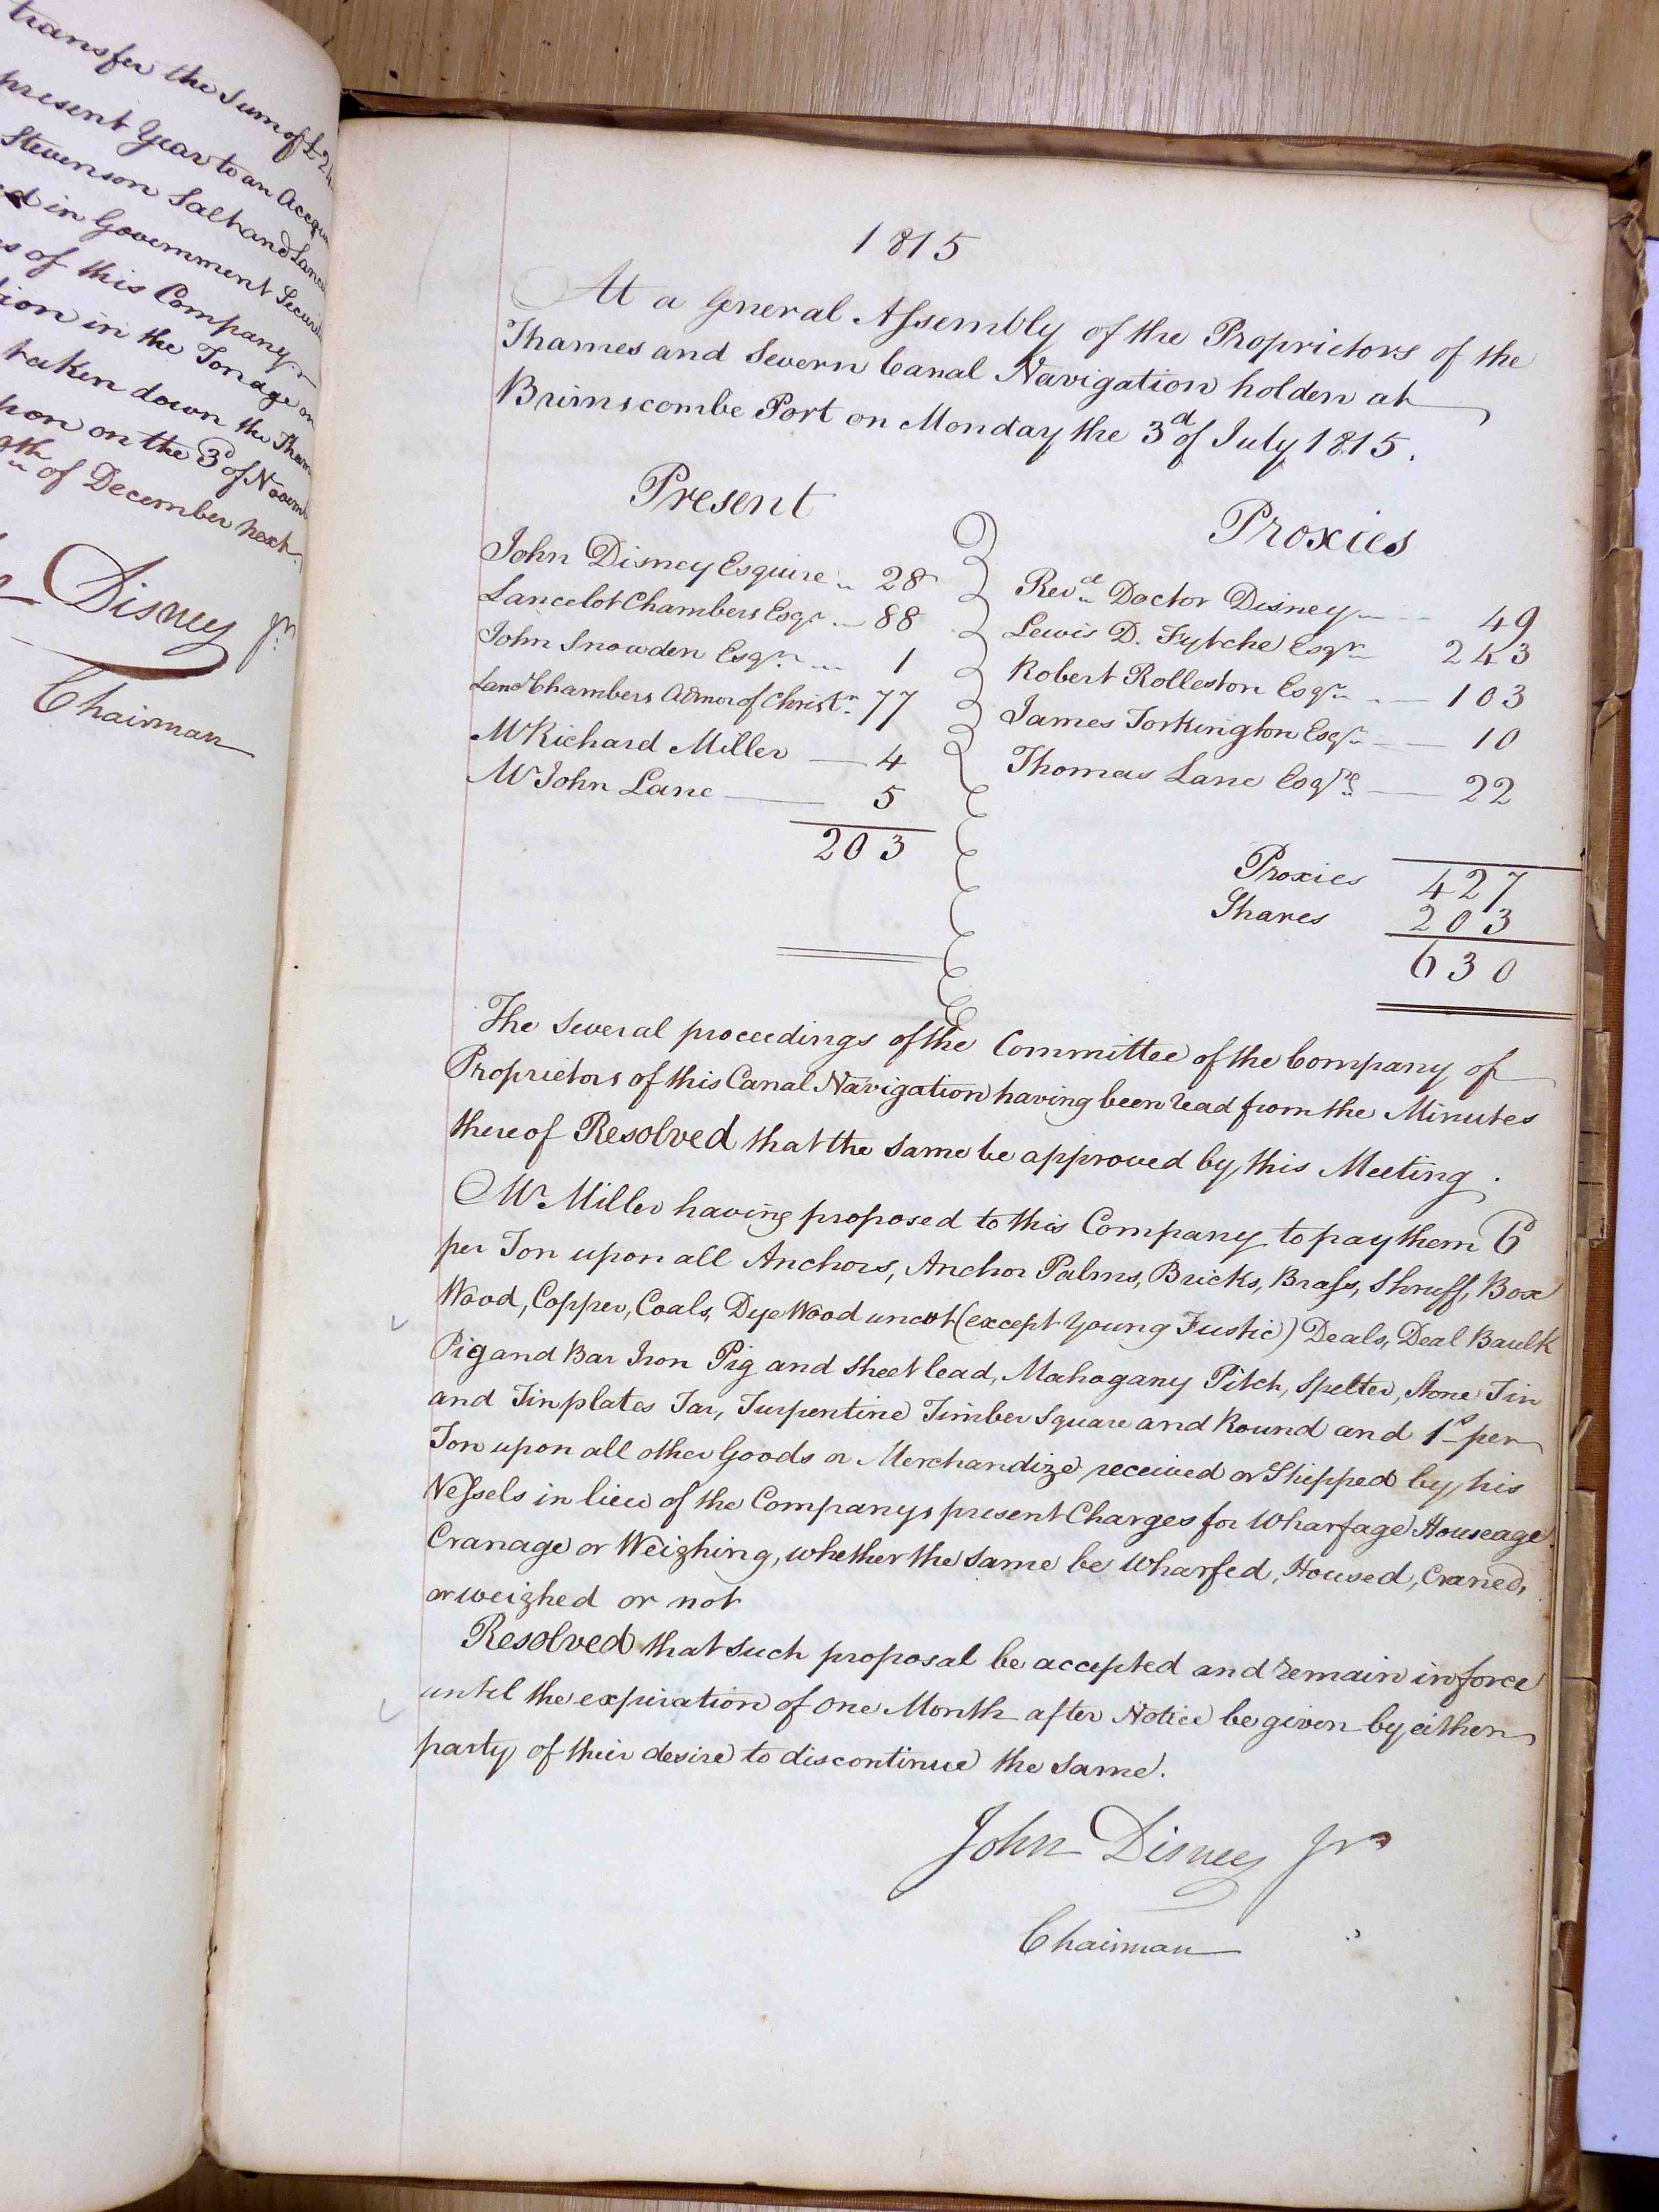 transfer the Sum of £2
present Year to an Accou
Stevenson Salt and Lanc
ed in Government Securi
s of this Company
tion in the Tonage on
taken down the Tham
pon on the 3d of Novem
th of December next.
Disney Jnr
Chairman
1815
At a General Assembly of the Proprietors of the
Thames and Severn Canal Navigation holden at
Brimscombe Port on Monday the 3d of July 1815.
Present
John Disney Esquire 28
Lancelot Chambers Esqr 88
John Snowden Esqr 1
Lanct Chambers Admor of Christn 77
Mr Richard Miller 4
Mr John Lane 5
203
Proxies
Revd Doctor Disney 49
Lewis D. Fytche Esqr 243
Robert Rolleston Esqr 103
James Torkington Esqr 10
Thomas Lane Esqre 22
Proxies 427
Shares 203
630
The Several proceedings of the Committee of the Company of
Proprietors of this Canal Navigation having been read from the Minutes
thereof Resolved that the same be approved by this Meeting.
Mr Miller having proposed to this Company to pay them 6d
per Ton upon all Anchors, Anchor Palms, Bricks, Brass, Shruff, Box
Wood, Copper, Coals, Dye Wood uncut (except Young Fustic) Deals, Deal Baulk
Pig and Bar Iron Pig and Sheet lead, Mahogany Pitch, Spelter, Stone Tin
and Tinplates Tar, Turpentine Timber Square and Round and 1s per
Ton upon all other Goods or Merchandize received or Shipped by his
Vessels in lieu of the Companys present Charges for Wharfage Houseage
Cranage or Weighing, whether the same be Wharfed, Housed, Craned,
or weighed or not
Resolved that such proposal be accepted and remain in force
until the expiration of One Month after Notice be given by either
party of their desire to discontinue the same.
John Disney Jnr
Chairman